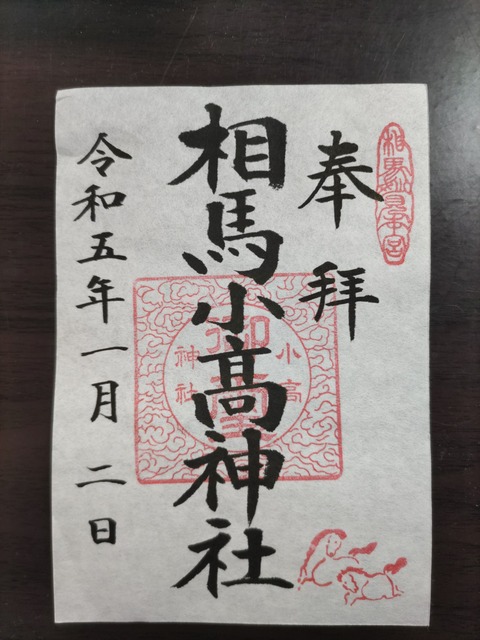 相馬妙見本宮
奉拝
相馬小髙神社
小高
御璽
神社
令和五年一月二日